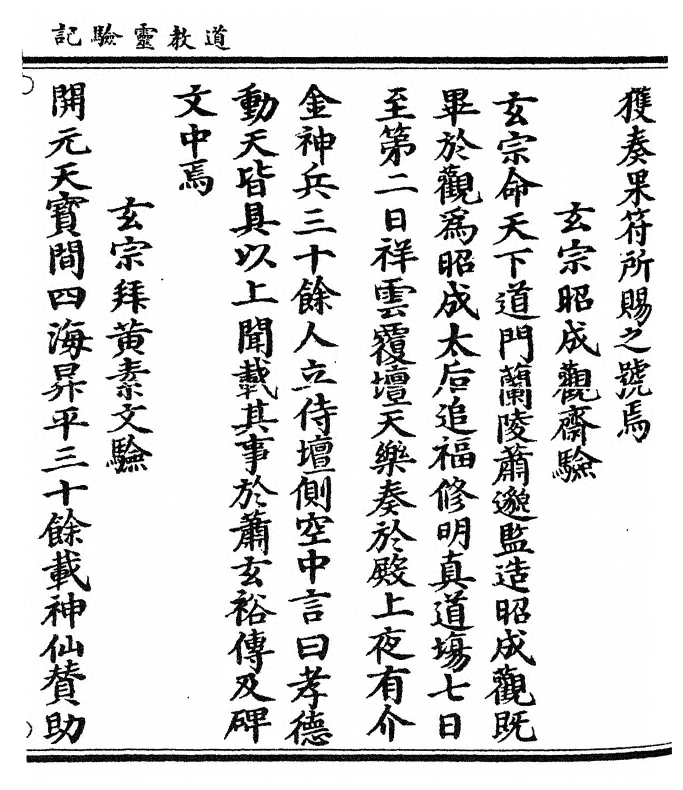 道教靈驗記
獲奏果符所賜之號焉
玄宗昭成觀齋驗
玄宗命天下道門蘭陵蕭邈監造昭成觀既
畢於觀爲昭成太后追福修明真道場七日
至第二日祥雲覆壇天樂奏於殿上夜有介
金神兵三十餘人立侍壇側空中言曰孝德
動天皆具以上聞載其事於蕭玄裕傳及碑
文中焉
玄宗拜黃素文驗
開元天寶間四海昇平三十餘載神仙贊助